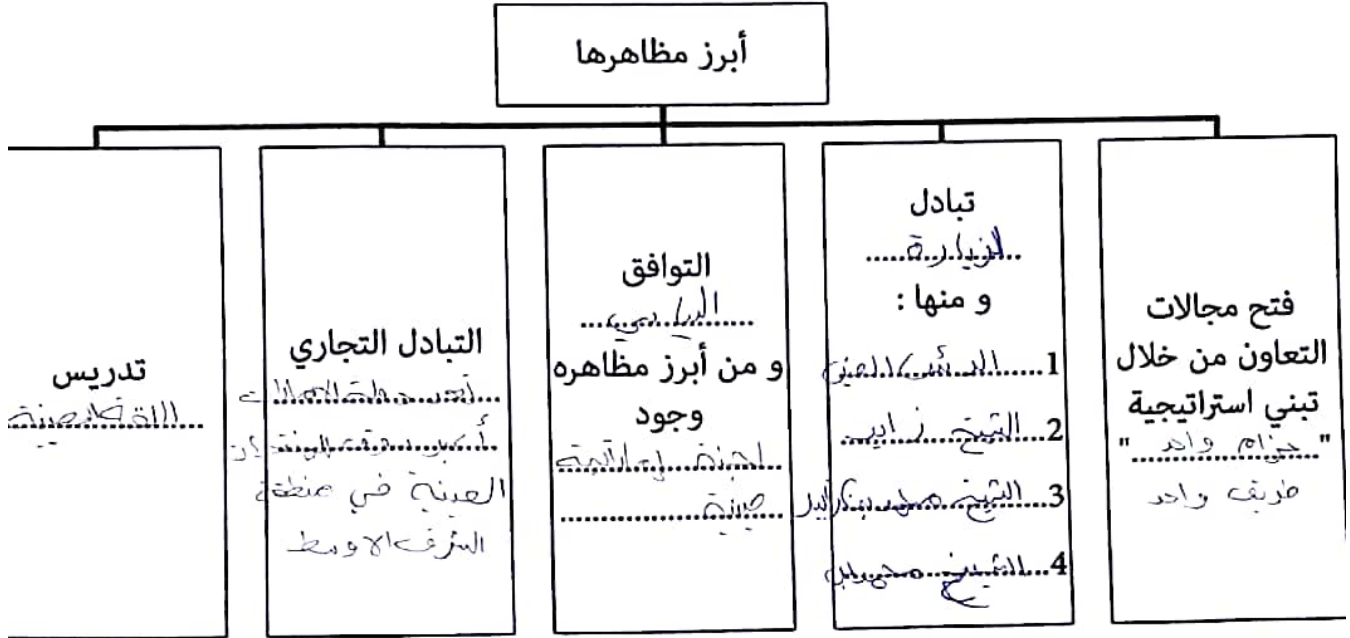 أبرز مظاهرها
فتح مجالات
التعاون من خلال
تبني استراتيجية
" حزام واحد "
طريق واحد
تبادل
الزيارة
و منها :
1 الرئيس الصيني
2 الشيخ زايد
3 الشيخ محمد بن زايد
4 الشيخ محمد بن
التوافق
السياسي
و من أبرز مظاهره
وجود
لجنة إماراتية
صينية
التبادل التجاري
تعد دولة الامارات
أكبر سوق
الصينية في منطقة
الشرق الاوسط
تدريس
اللغة الصينية